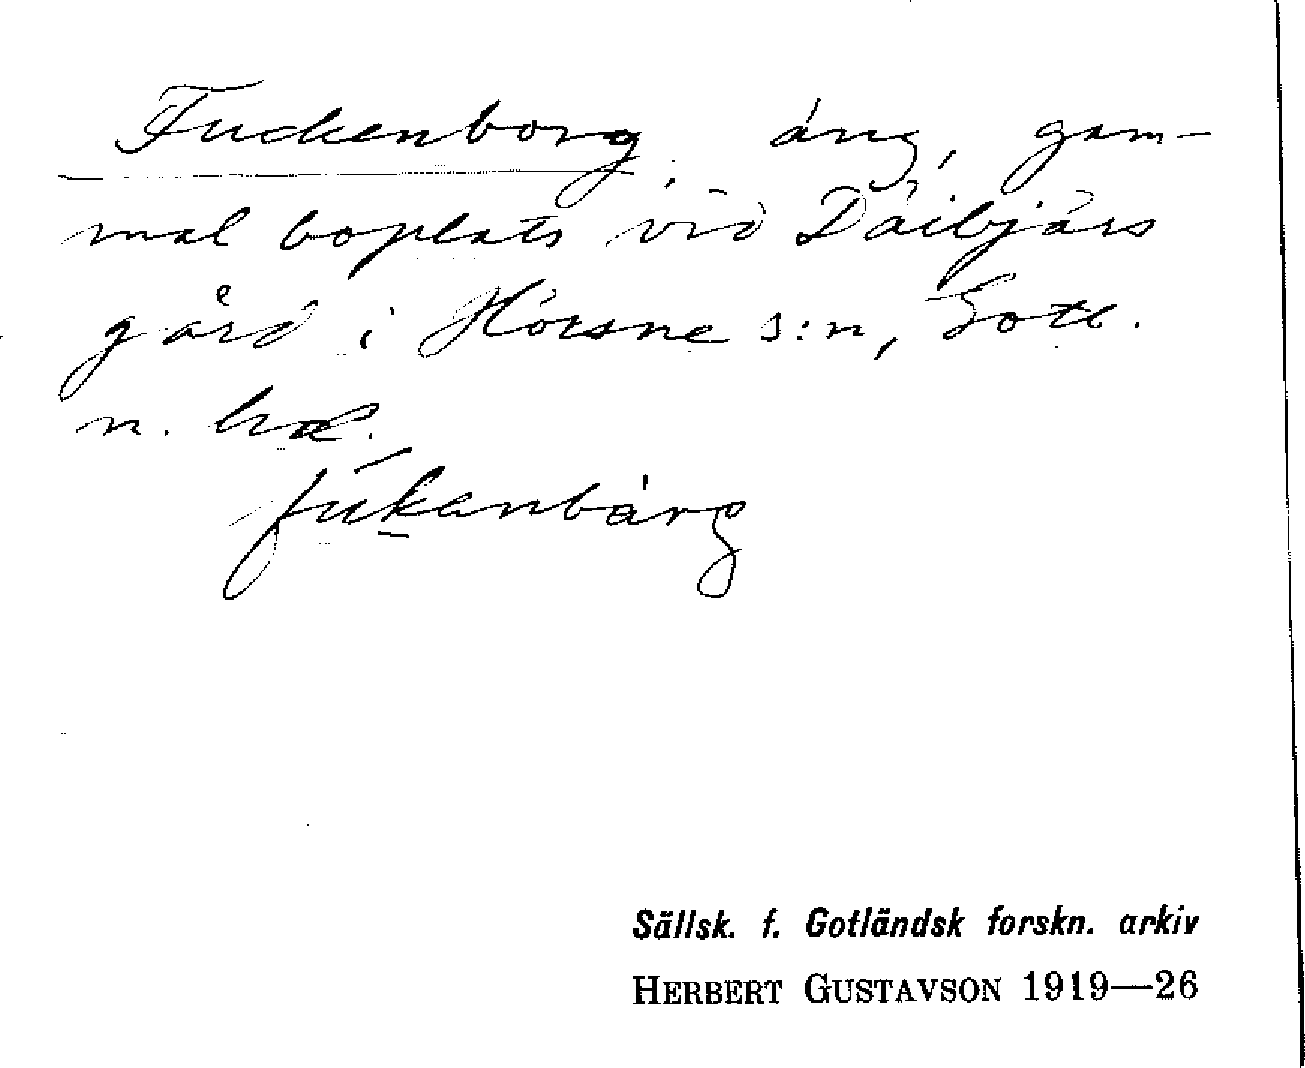 Fuckenborg, äng, gam-
mal boplats vid Däibjärs
gård i Hörsne s:n, Gotl.
n. hd.
fúkanbàrg
Sällsk. f. Gotländsk forskn. arkiv
HERBERT GUSTAVSON 1919—26